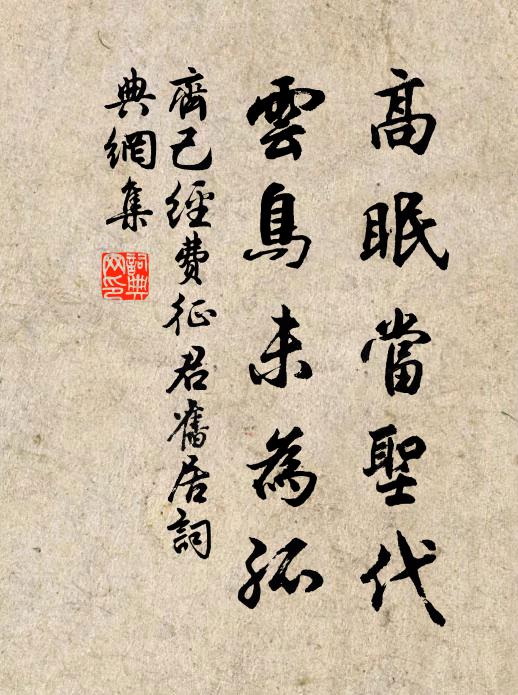 高眠當聖代
雲鳥未為孤
齊己經費征君舊居詞
典網集
詞典
网印